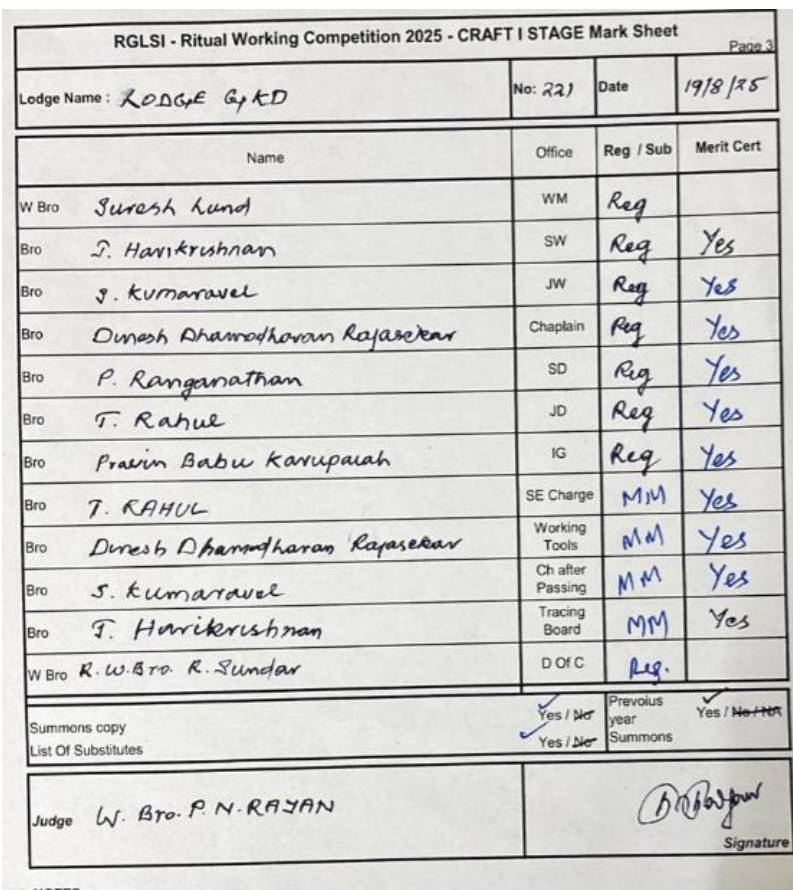 RGLSI - Ritual Working Competition 2025 - CRAFT I STAGE Mark Sheet
Page 3
Lodge Name : LODGE GKD No: 221 Date 19/8/25
Name Office Reg / Sub Merit Cert
W Bro Suresh Lund WM Reg
Bro J. Harikrishnan SW Reg Yes
Bro S. Kumaravel JW Reg Yes
Bro Dinesh Dhamodharan Rajasekar Chaplain Reg Yes
Bro P. Ranganathan SD Reg Yes
Bro T. Rahul JD Reg Yes
Bro Pravin Babu Karupaiah IG Reg Yes
Bro T. RAHUL SE Charge MM Yes
Bro Dinesh Dhamodharan Rajasekar Working Tools MM Yes
Bro S. Kumaravel Ch after Passing MM Yes
Bro J. Harikrishnan Tracing Board MM Yes
W Bro R.W.Bro. R. Sundar D Of C Reg.
Summons copy Yes / No Prevoius year Summons Yes / No / NA
List Of Substitutes Yes / No
Judge W. Bro. P. N. RAJAN
Signature